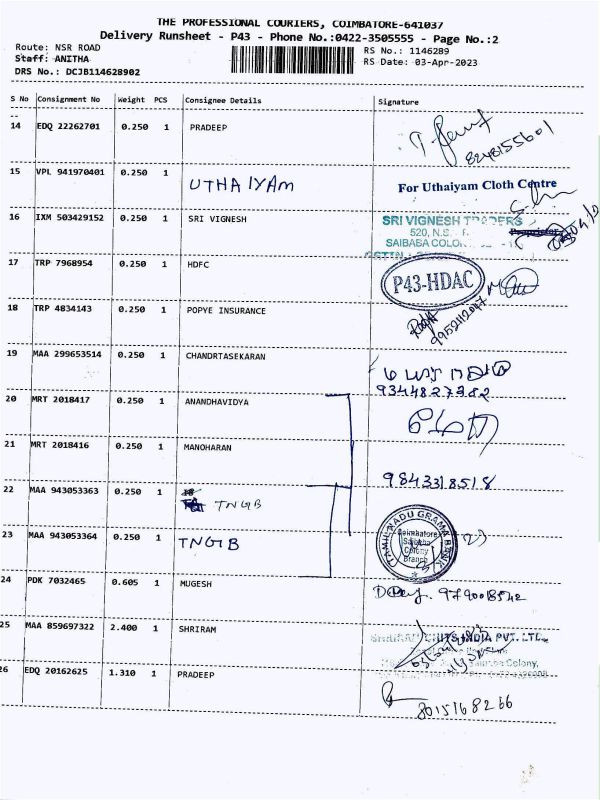 THE PROFESSIONAL COURIERS, COIMBATORE-641037
Delivery Runsheet - P43 - Phone No.:0422-3505555 - Page No.:2
Route: NSR ROAD
RS No.: 1146289
Staff: ANITHA
RS Date: 03-Apr-2023
DRS No.: DCJB114628902
S No Consignment No Weight PCS Consignee Details Signature
--
14 EDQ 22262701 0.250 1 PRADEEP
8248155601
15 VPL 941970401 0.250 1 UTHAIYAM
For Uthaiyam Cloth Centre
16 IXM 503429152 0.250 1 SRI VIGNESH
SRI VIGNESH TRADERS
Proprietor
520, N.S.
SAIBABA COLON
GSTIN
17 TRP 7968954 0.250 1 HDFC
P43-HDAC
18 TRP 4834143 0.250 1 POPYE INSURANCE
19 MAA 299653514 0.250 1 CHANDRTASEKARAN
9344827382
20 MRT 2018417 0.250 1 ANANDHAVIDYA
21 MRT 2018416 0.250 1 MANOHARAN
9843318518
22 MAA 943053363 0.250 1 TNGB
23 MAA 943053364 0.250 1 TNGB
TAMIL NADU GRAMA BANK
Coimbatore
Saibaba
Colony
Branch
24 PDK 7032465 0.605 1 MUGESH
25 MAA 859697322 2.400 1 SHRIRAM
SHRIRAM CHITS INDIA PVT. LTD.,
Colony,
26 EDQ 20162625 1.310 1 PRADEEP
8015168266